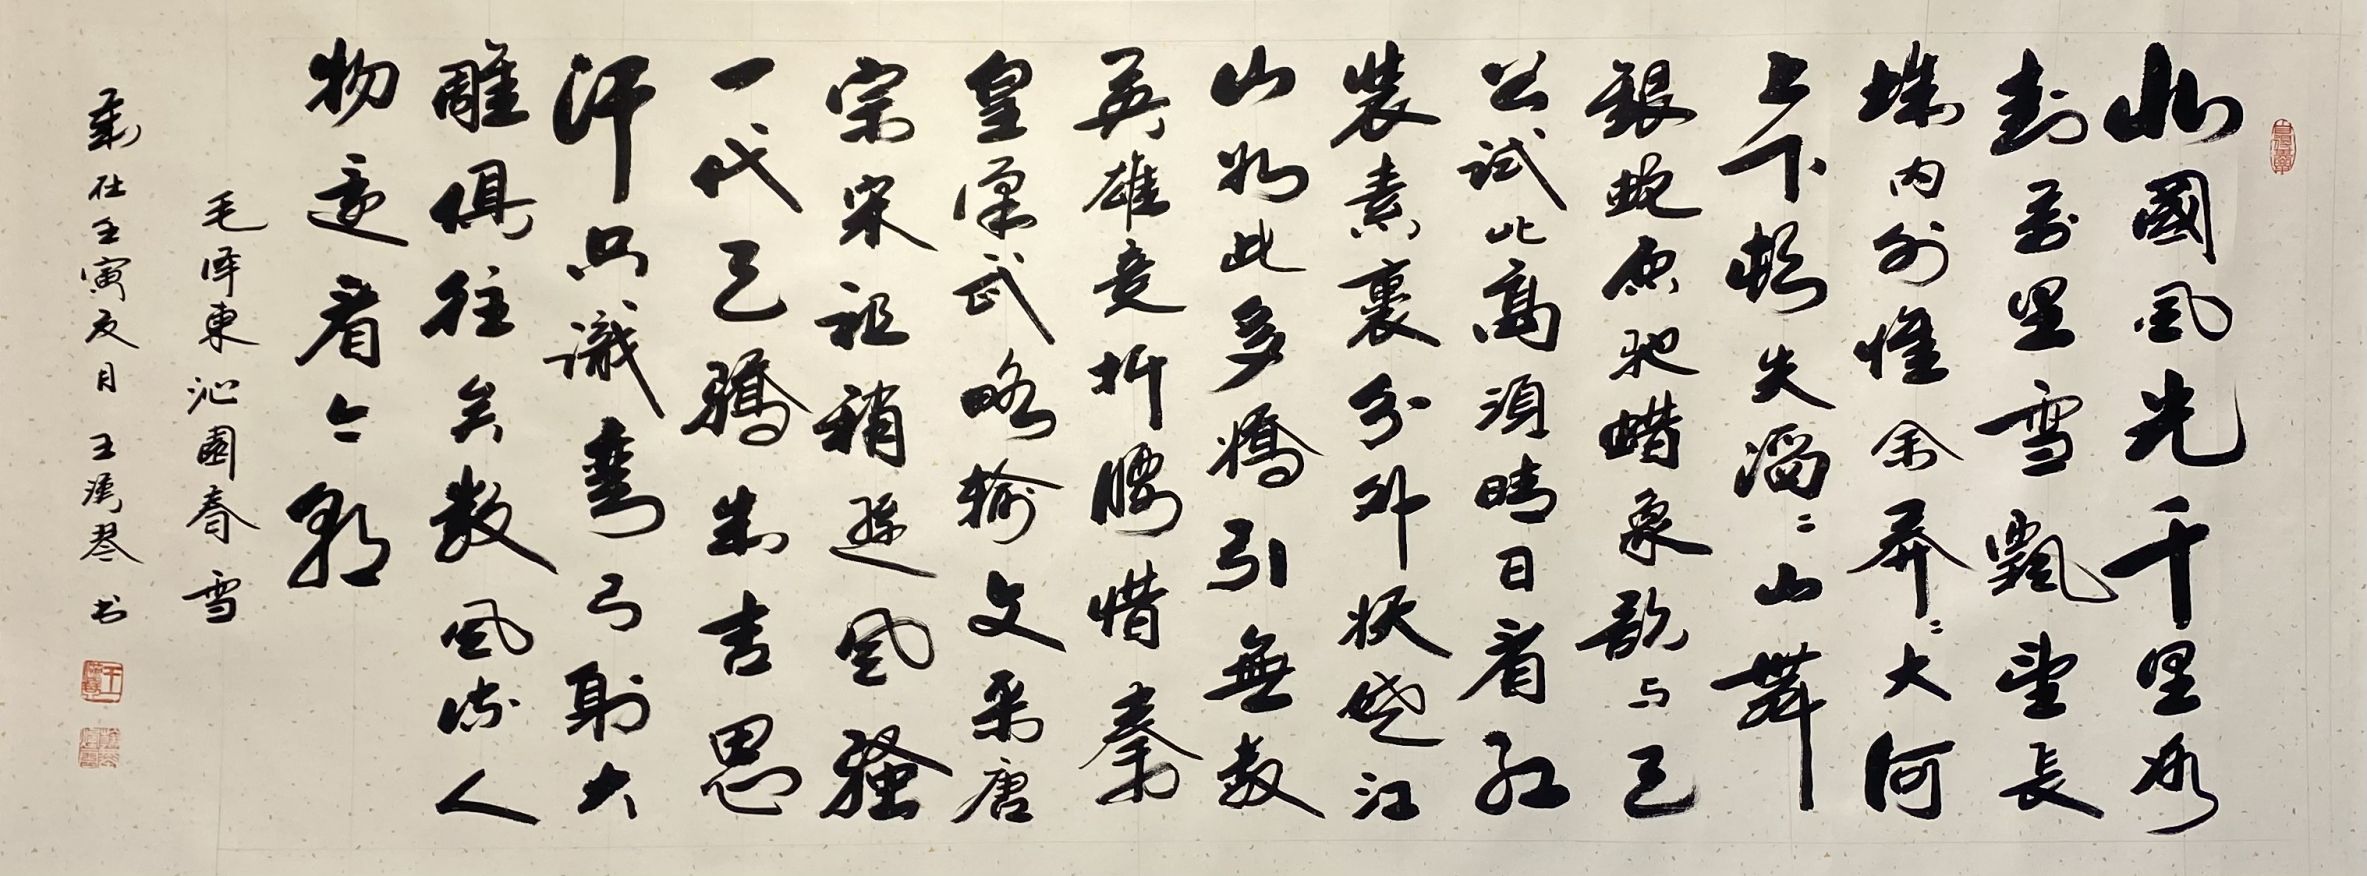 北國風光千里冰
封萬里雪飄望長
城内外惟余莽〻大河
上下頓失滔〻山舞
銀蛇原驰蜡象欲与天
公試比高須晴日看红
装素裹分外妖娆江
山如此多嬌引無数
英雄竞折腰惜秦
皇漢武略输文采唐
宗宋祖稍遜風騷
一代天驕成吉思
汗只識彎弓射大
雕俱往矣数風流人
物還看今朝
毛泽東沁園春雪
歲在壬寅夏月 王琴书